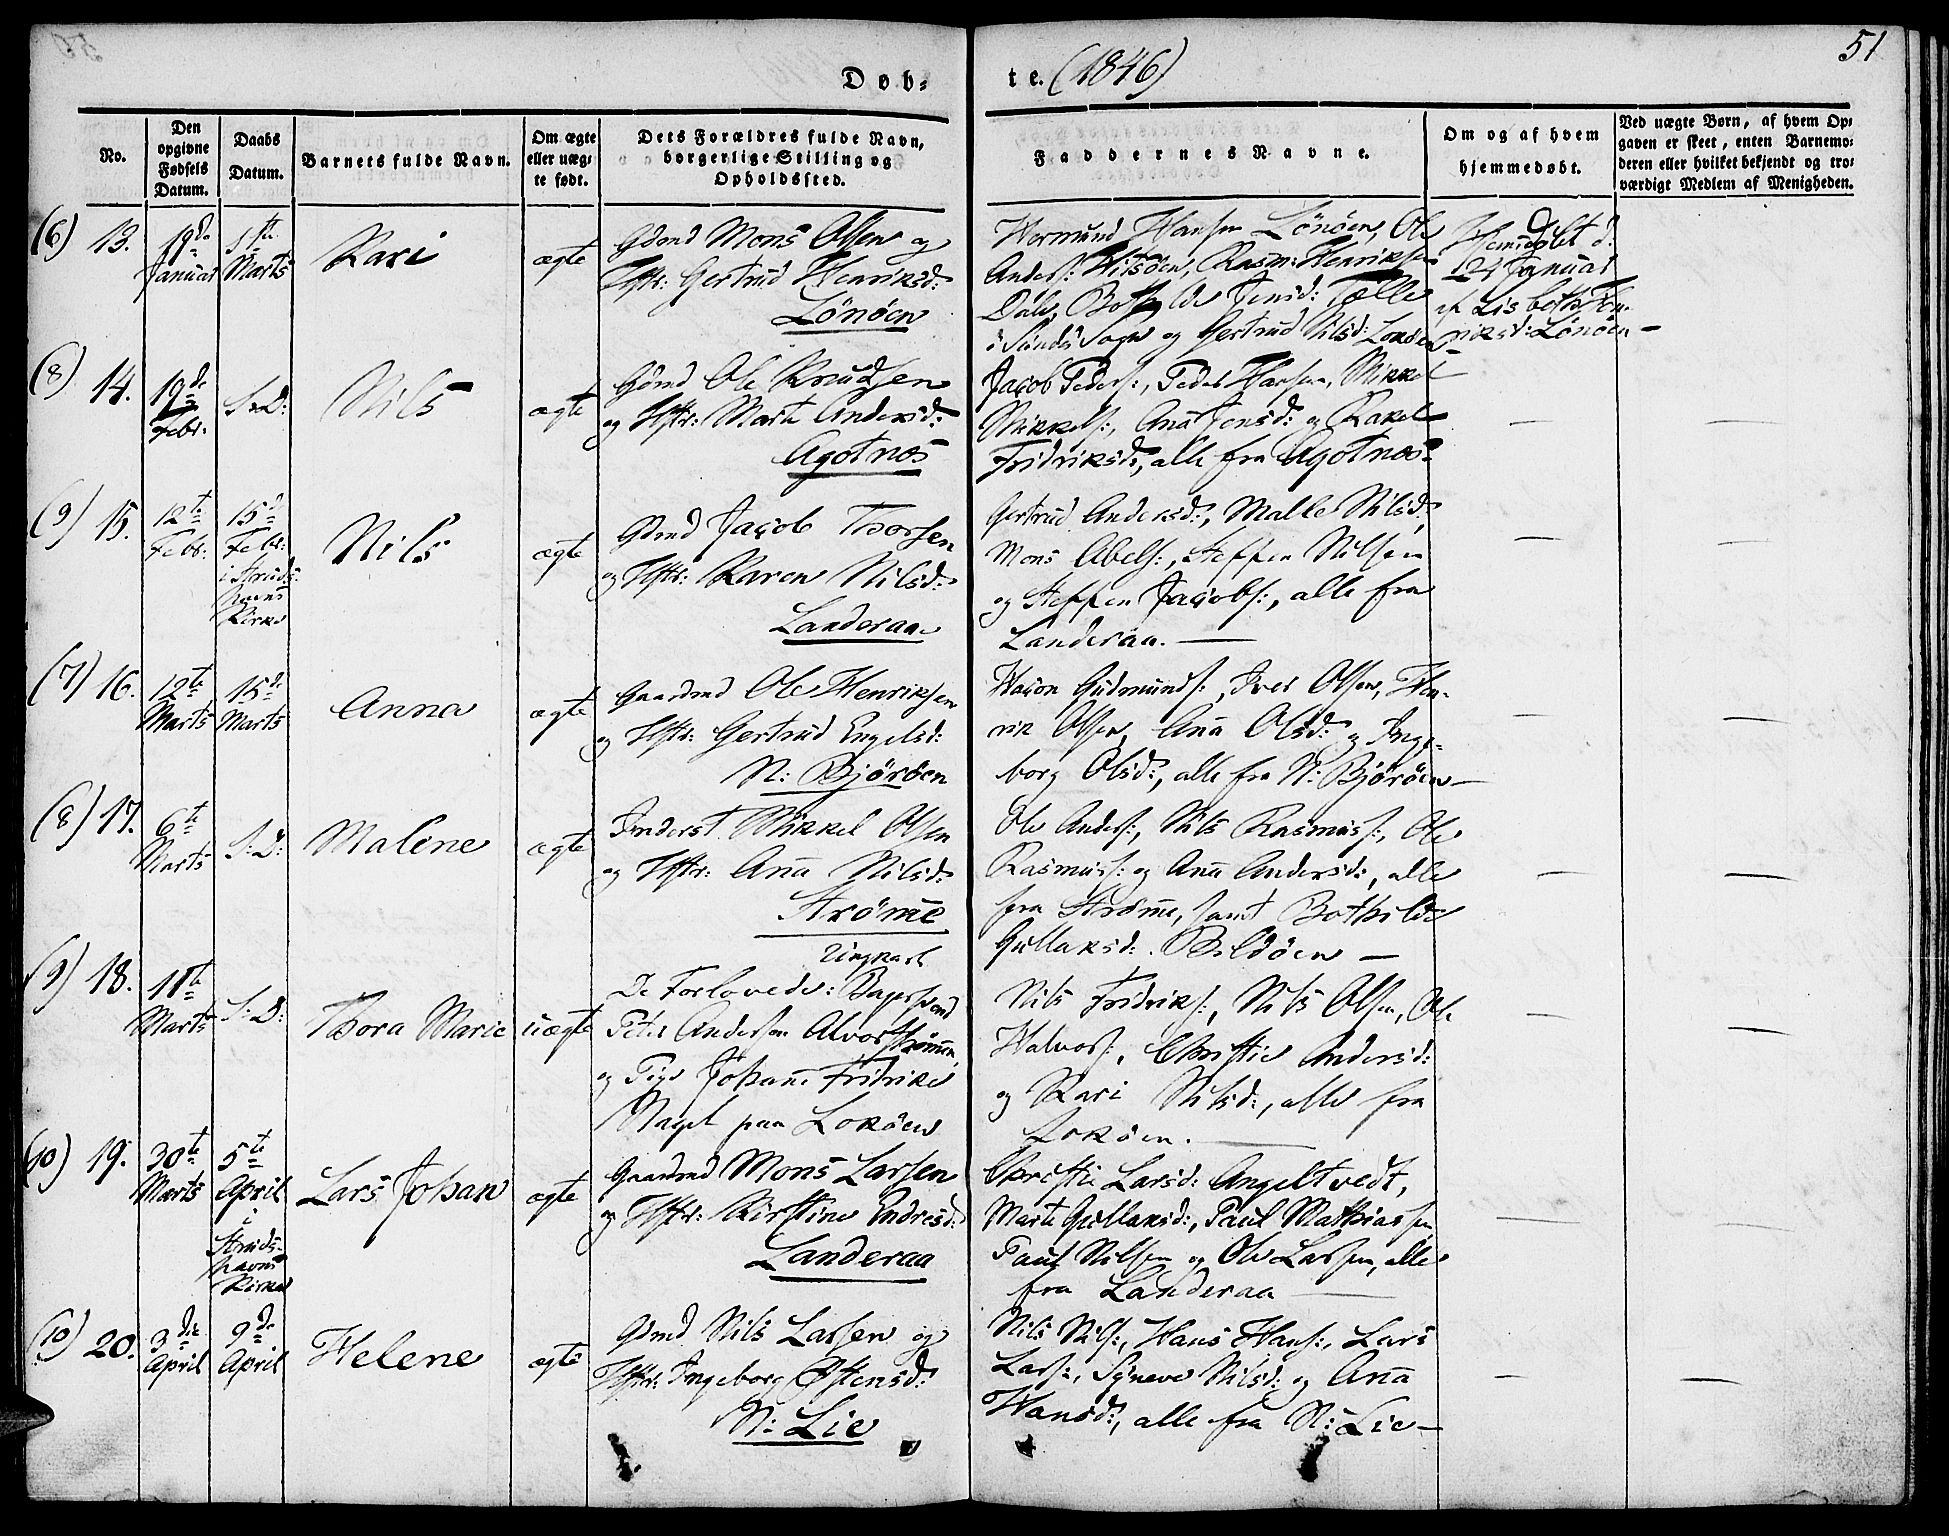 51
Døb-
te. (1846)
No.
Den
opgivne
Fødsels
Datum.
Daabs
Datum.
Barnets fulde Navn.
Om ægte
eller uæg-
te født.
Dets Forældres fulde Navn,
borgerlige Stilling og
Opholdssted.
Faddernes Navne.
Om og af hvem
hjemmedøbt.
Ved uægte Børn, af hvem Op-
gaven er skeet, enten Barnemo-
deren eller hvilket bekjendt og tro-
værdigt Medlem af Menigheden.
(6) 13.
19de
Januar
1ste
Marts
Kari
ægte
Gdmd Mons Olsen og
Hstr: Gertrud Henriksd:
Lönöen
Hermund Hansen Lönöen, Ole
Anders: Vitsöen, Rasm: Henriksen
Dale, Bothilde Jensd: Tælle
i Sunds Sogn og Gertrud Nilsd: Lokøen
Hemdøbt d:
24 Januar
af Lisbeth Hen-
riksd: Lönöen —
(8) 14.
19de
Febr.
S: D:
Nils
ægte
Gdmd Ole Knudsen
og Hstr: Marte Andersd:
Agotnæs
Jacob Peders:, Peder Hansen, Mikkel
Mikkels:, Aña Jensd: og Rakel
Fridriksd:, alle fra Agotnæs.
(9) 15.
12te
Febr:
15de
Febr:
i Struds-
havns
Kirke
Nils
ægte
Gdmd Jacob Thorsen
og Hstr: Karen Nilsd:
Landeraa.
Gertrud Andersd:, Malle Nilsd:,
Mons Abels:, Steffen Nilsen
og Steffen Jacobs:, alle fra
Landeraa. —
(7) 16.
12te
Marts
15de
Marts
Anna
ægte
Gaardmd Ole Henriksen
og Hstr: Gertrud Engelsd:
N: Björöen
Hacon Gudmunds:, Iver Olsen, Hen-
rik Olsen, Aña Olsd: og Inge-
borg Olsd:, alle fra N: Björöen —
(8) 17.
6te
Marts
S: D:
Malene
ægte
Inderst Mikkel Olsen
og Hstr: Aña Nilsd:
Ströme
Ole Anders:, Nils Rasmus:, Ole
Rasmuss: og Aña Andersd:, alle
fra Ströme, samt Bothilde
Gullaksd: Bildöen —
(9) 18.
11te
Marts
S: D:
Thora Marie
uægte
Ungkarl
De Forlovede: Bagersvend
Peter Andersen Alvorströmm,
og Pige Johañe Fridrike
Nagel paa Loköen
Nils Fridriks:, Nils Olsen, Ole
Halvors:, Christie Andersd:
og Kari Nilsd:, alle fra
Loköen. —
(10) 19.
30te
Marts
5te
April
i
Struds-
havns
Kirke
Lars Johan
ægte
Gaardmd Mons Larsen
og Hstr: Kirstine Endresd:
Landeraa
Christie Larsd: Angeltvedt,
Marte Gullaksd:, Paul Mathiassen,
Paul Nilsen og Ole Larsen, alle
fra Landeraa —
(10) 20.
3die
April
9de
April
Helene
ægte
Gdmd Nils Larsen og
Hstr: Ingeborg Østensd:
N: Lie
Nils Nils:, Hans Hans:, Lars
Lars:, Syneve Nilsd: og Aña
Hansd:, alle fra N: Lie —